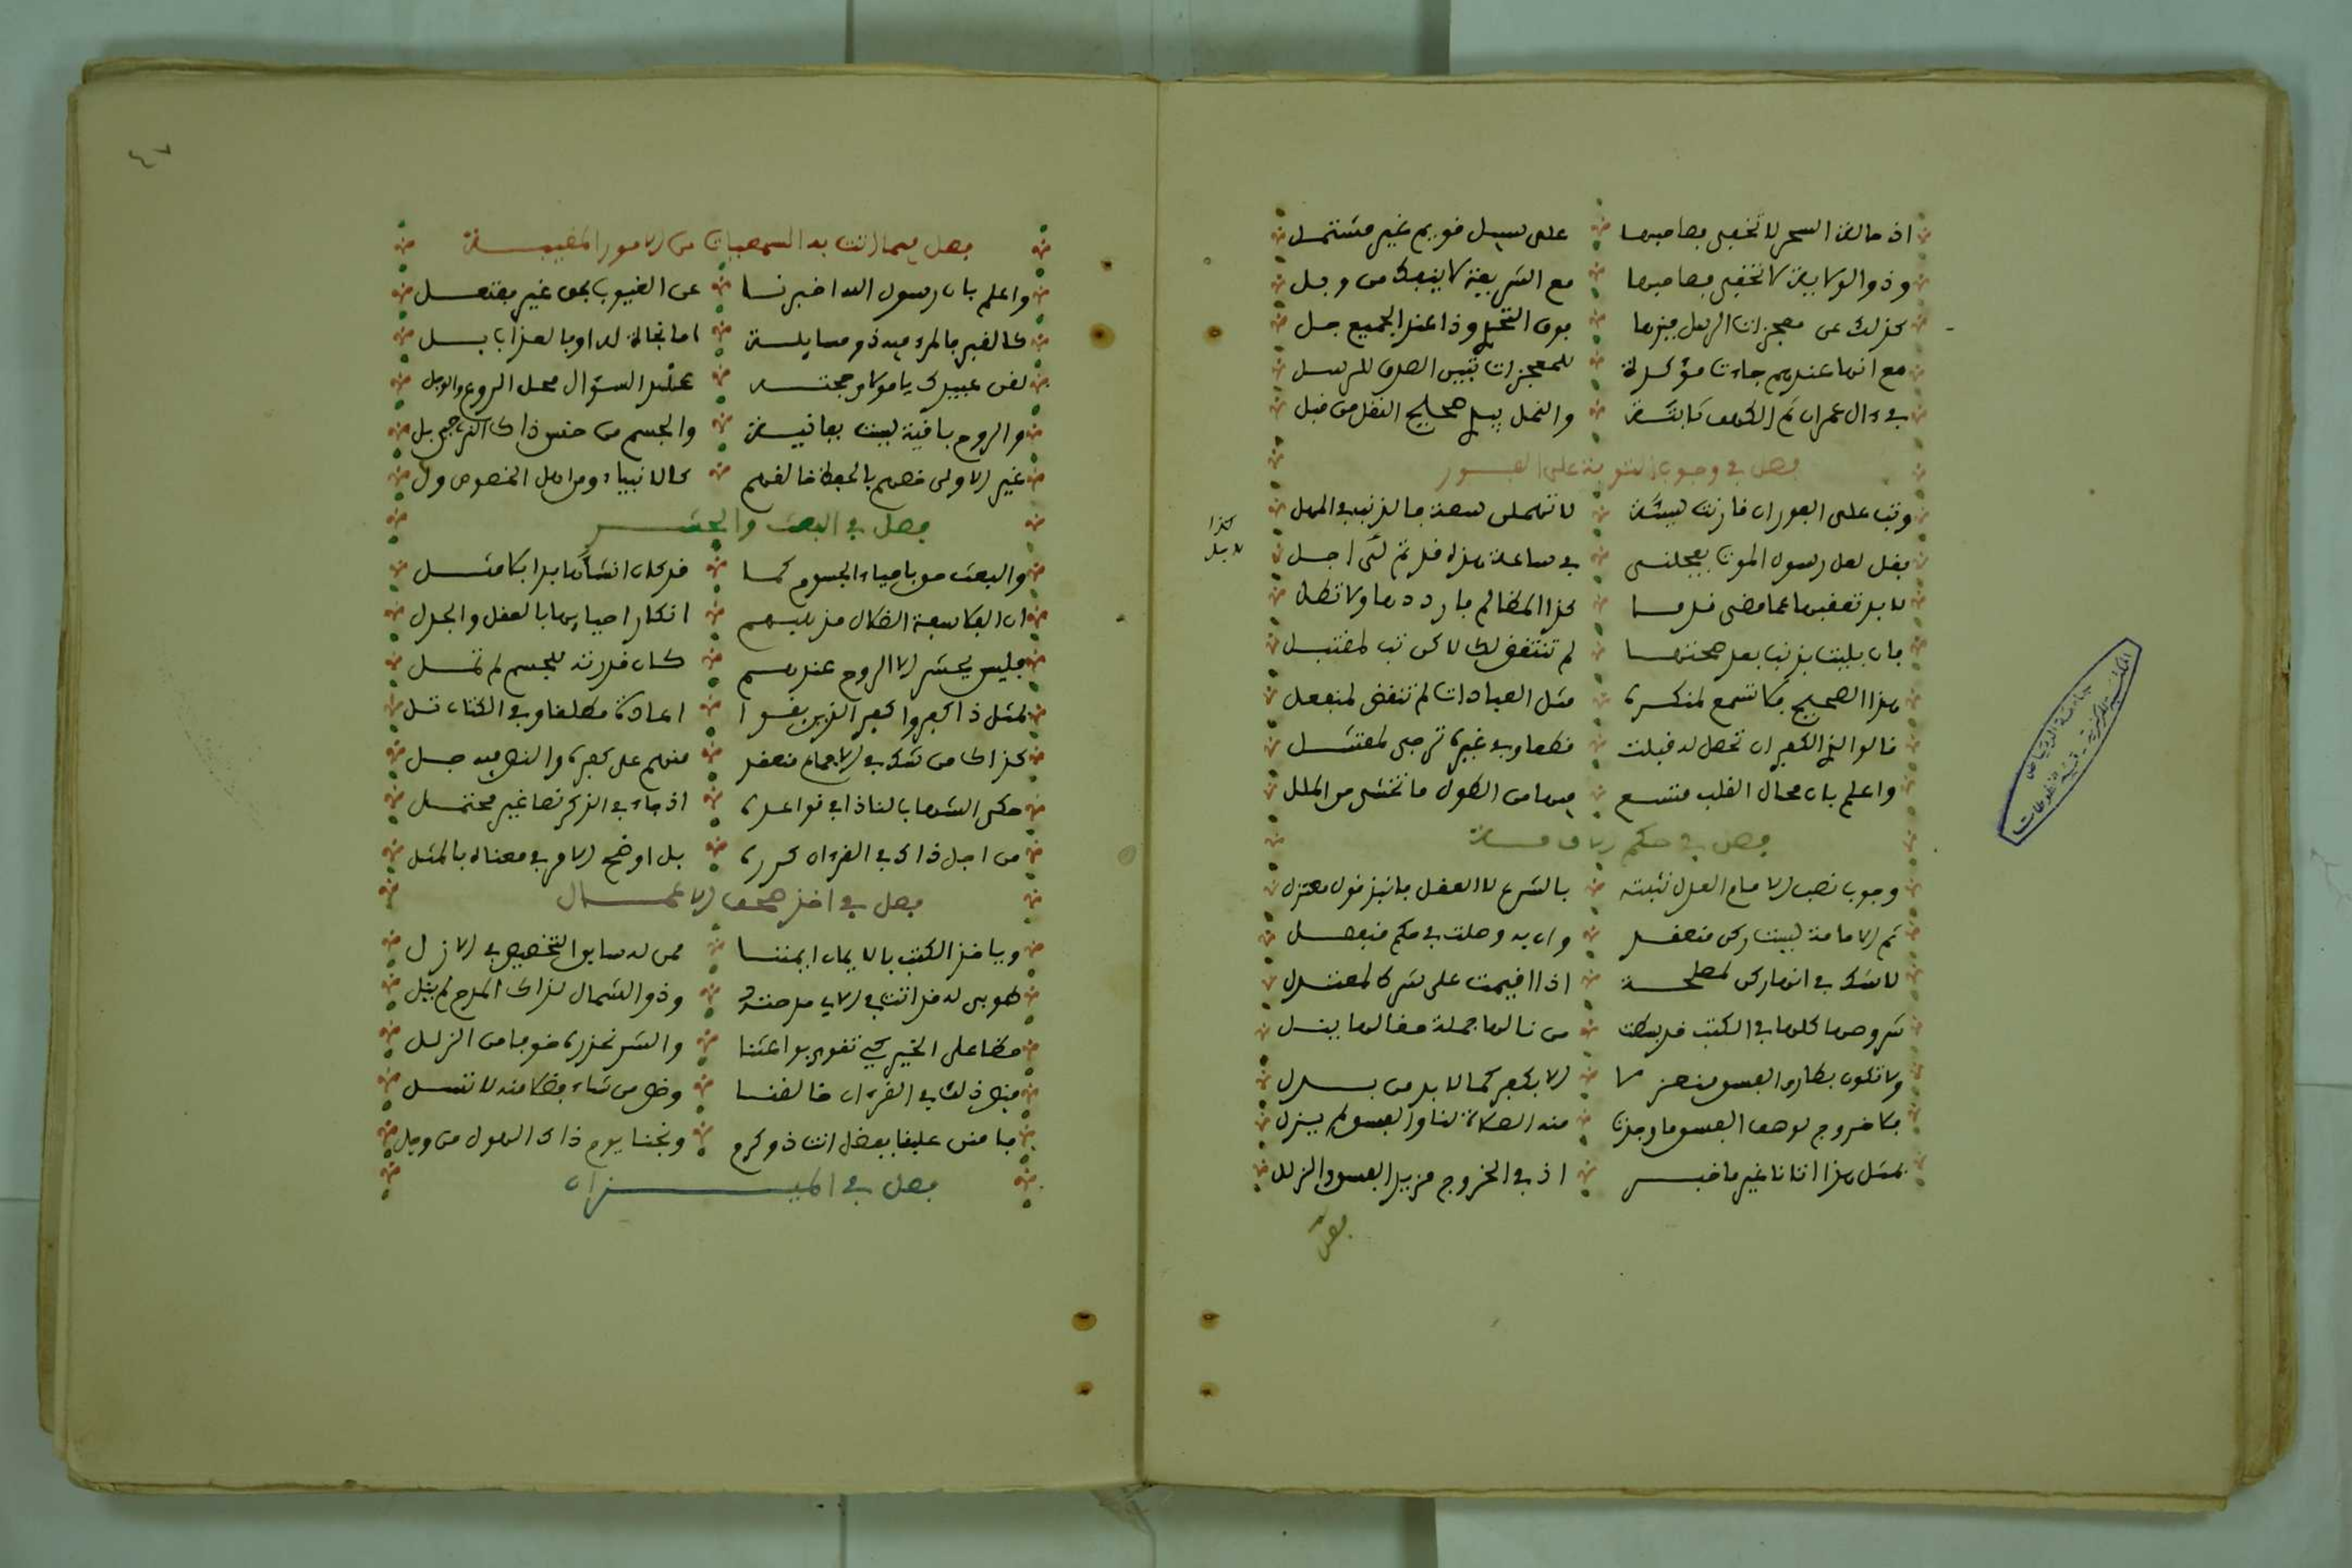 اذ حالة السحر لا تخفى بصاحبها على سبيل قويم غير مشتمل
وذو الولاية لا تخفى بصاحبها مع الشريعة لا ينفك من وجل
كذلك عن معجزات الرسل ميزها بوق التحلي وذا عند الجميع جل
مع انها عندهم جاءت مؤكدة للمعجزات تبين الصدق للرسل
في ءال عمران ثم الكهف ثابتة والنمل
فصل في وجوب التوبة على الفور
وتب على الفور ان قارفت سيئة لا تمهلن سعة بالذنب في المهل
فقل لعل رسول الموت يعجلني في ساعة هذه قد تم لي اجل
كذا
لا بد تعقبها عما مضى ندما كذا المظالم فارددها ولا تطل
فان بليت بذنب بعد صحتها لم تنتقض لك لاكن تب لمقتبل
هذا الصحيح فلا تسمع لمنكره مثل العبادات لم تنقض لمنفعل
قالوا الذي الكفر ان تحصل له قبلت قطعا وفي غيره ترجى
واعلم بان مجال القلب متسع فيها من الطول ما تخشى من الملل
فصل في حكم الامامة
وجوب نصب الامام العدل نثبته بالشرع لا العقل فانبذ قول معتزل
ثم الامامة ليست ركن معتقد وان به وصلت في حكم منفصل
لا شك في انها ركن لمصلحة اذا اقيمت على شرط لمعتدل
شروطها كلها في الكتب قد بسطت من نالها جملة فعالها ينل
ولا تكون بطارء الفسق منعزلا الا بكفر كما لا بد من بدل
فلا خروج لوصف الفسق ما وجدت منه الصلاة لنا والفسق لم يزل
لمثل هذا اتانا غير ما خبر اذ في الخروج مزيد الفسق والزلل
فصل
فصل فيما اتت به السمعيات من الامور المغيبة
واعلم بان رسول الله اخبرنا عن الغيوب بحق غير مفتعل
كالقبر فالمرء فيه ذو مسايلة اما نجاة له او بالعذاب بل
لقن عبيدك يا مولاي حجته عند السؤال محل الروع والوجل
والروح باقية ليست بفانية والجسم من جنس ذاك الترب بلي
غير الاولى خصهم بالحفظ خالقهم كالانبياء ومن اهل الخصوص ول
فصل في البعث والحشر
والبعث حق باحياء الجسوم كما قد كان انشأها بدءا بلا مثل
ان الفلاسفة الضلال مذهبهم انكار احيايها بالعقل والجدل
فليس يحشر الا الروح عندهم كان قدرته للجسم لم تمل
لمثل ذا كفروا كفر الذين بغوا اعادة مطلقا وفي الكتاب تل
كذاك من شك في الاجماع منعقد منهم على كفره والنص فيه جل
حكى الشهاب لنا ذا في قواعده اذ جاء في الذكر نصا غير محتمل
من اجل ذاك في القرءان كرره بل اوضح الامر في معناه بالمثل
فصل في اخذ صحف الاعمال
وياخذ الكتب بالايمان ايمننا ممن له سابق التخصيص في الازل
طوبى له قد اتت في الاي مدحته وذو الشمال لذاك المدح لم ينل
حظا على الخير كي تقوى بواعثنا والشر نحذره خوفا من الزلل
فبض ذلك في القرءان خالقنا وخص من شاء فضلا منه لا تسل
فامنن علينا بفضل انت ذو كرم ونجنا يوم ذاك الهول من وجل
فصل في الميزان
جامعة الرياض
المكتبة المركزية - قسم المخطوطات